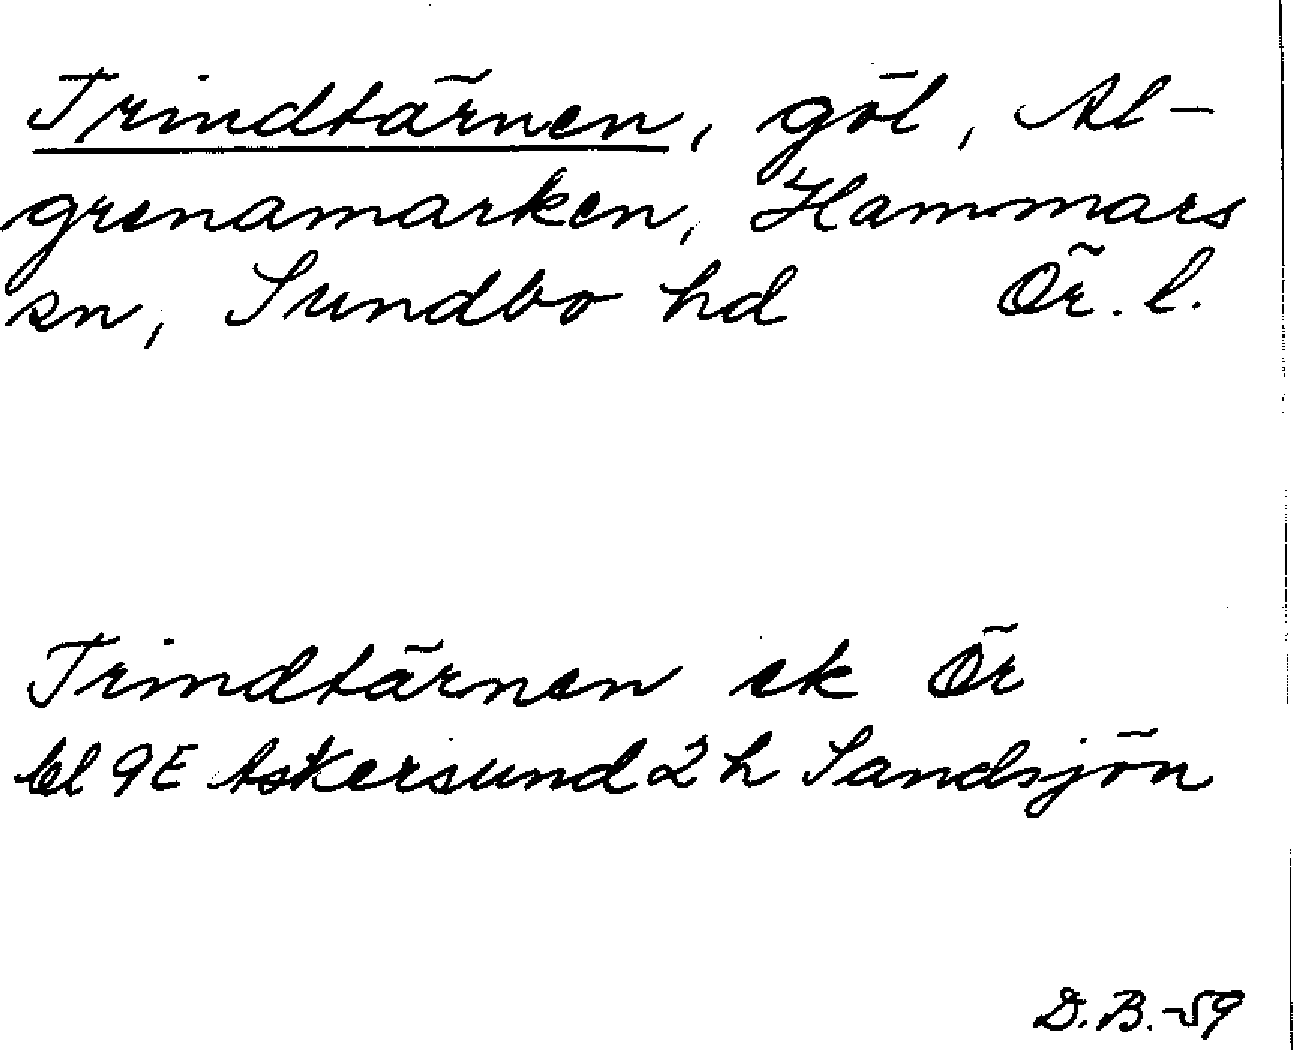 Trindtärnen, göl, Al-
grenamarken, Hammars
sn, Sundbo hd Ör. l.
Trindtärnen ek Ör
bl 9E Askersund 2 h Sandsjön
D.B.-59